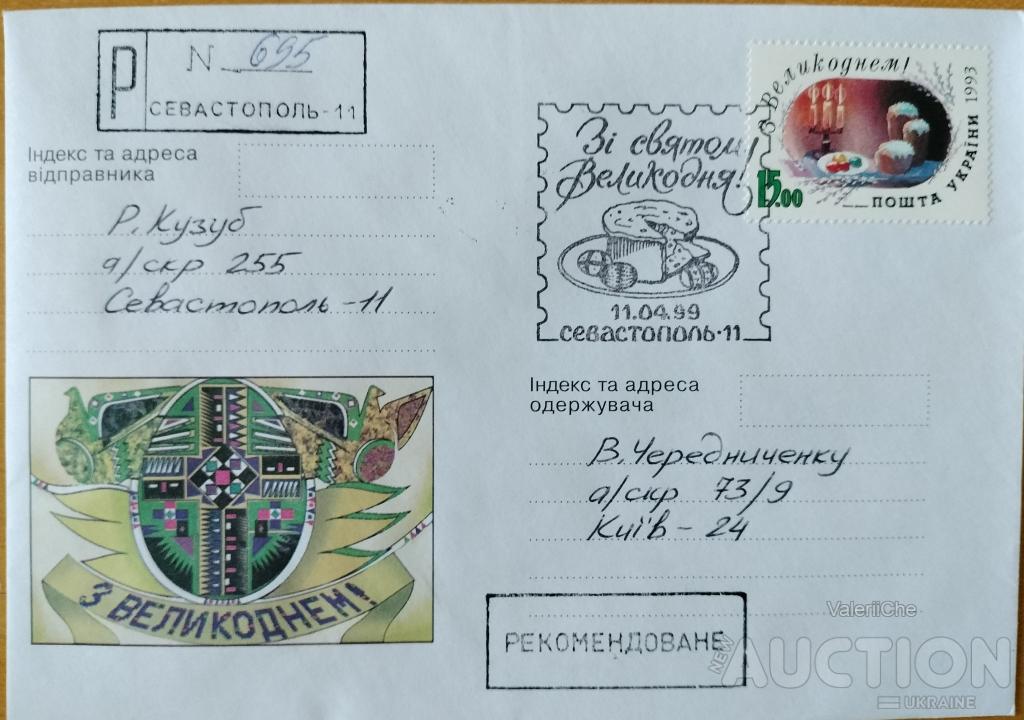 Р N 695
СЕВАСТОПОЛЬ-11
Індекс та адреса
відправника
Р. Кузуб
а/скр 255
Севастополь-11
З ВЕЛИКОДНЕМ!
Зі святом
Великодня!
11.04.99
СЕВАСТОПОЛЬ·11
З Великоднем!
15.00
ПОШТА УКРАЇНИ 1993
Індекс та адреса
одержувача
В. Чередниченку
а/скр 73/9
Київ - 24
РЕКОМЕНДОВАНЕ
ValeriiChe
NEW AUCTION
UKRAINE